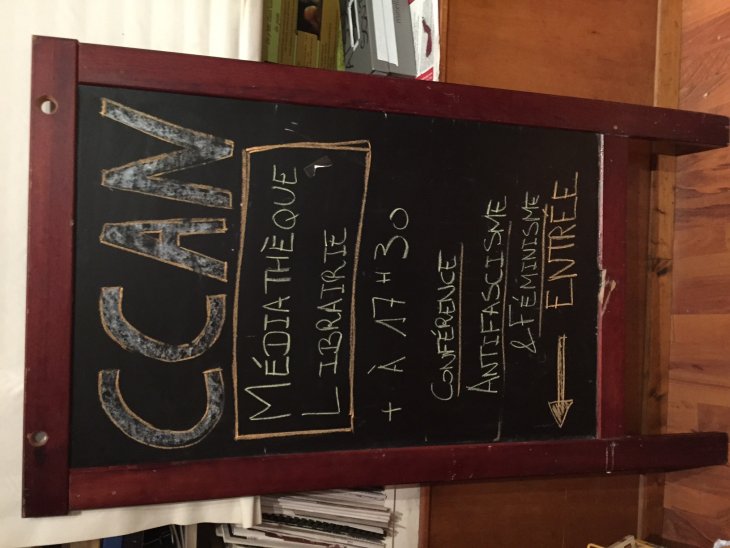 CCAN
MÉDIATHÈQUE
LIBRAIRIE
+ À 17H30
CONFÉRENCE
ANTIFASCISME
& FÉMINISME
← ENTRÉE